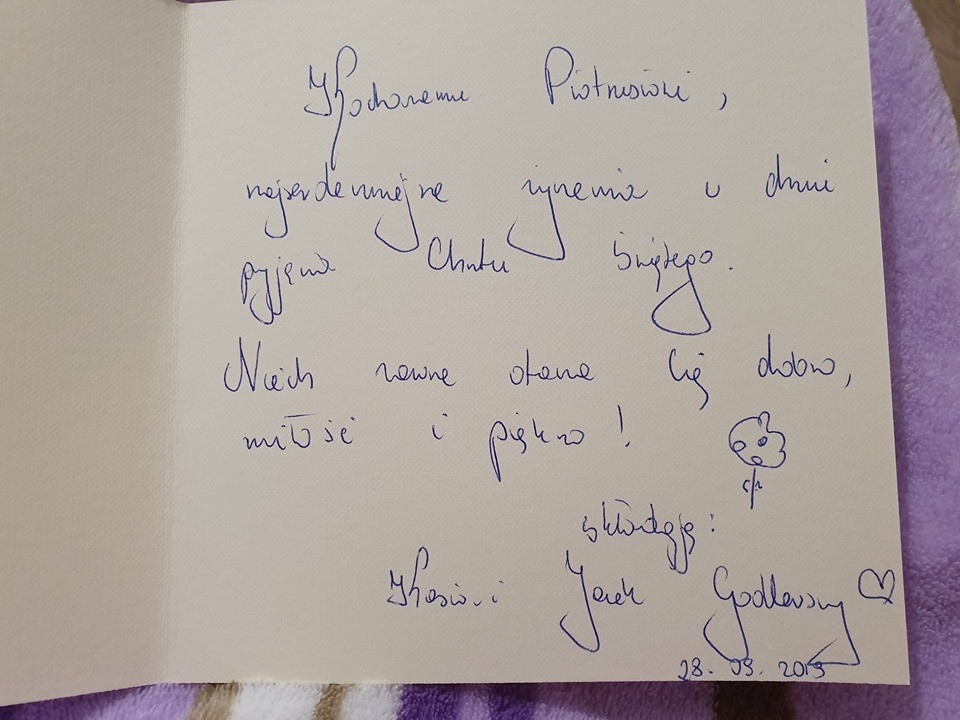 Kochanemu Piotrusiowi,
najserdeczniejsze życzenia w dniu
przyjęcia Chrztu Świętego.
Niech zawsze otacza Cię dobro,
miłość i piękno!
składają:
Kasia i Jacek Godlewscy
28.09.2019